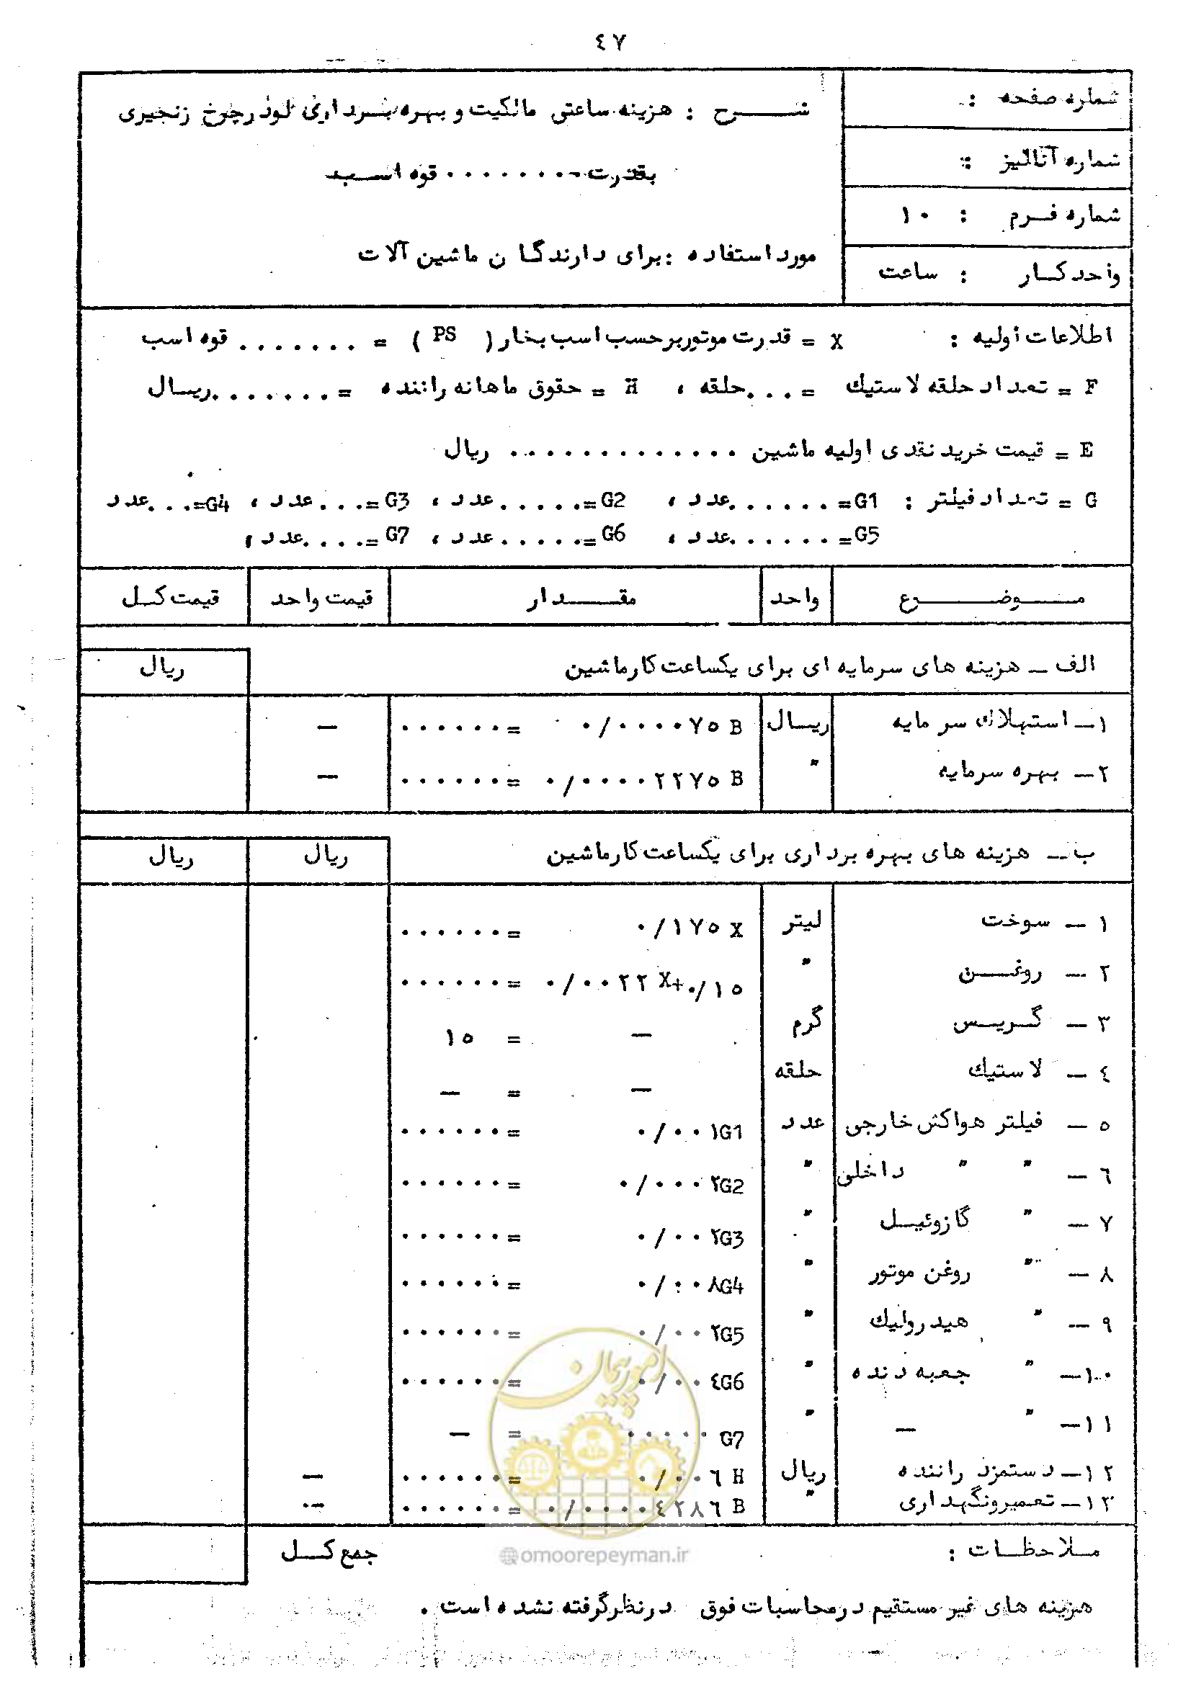 ٤٧
شماره صفحه :
شماره آنالیز :
شماره فرم : ١٠
واحد کار : ساعت
شرح : هزینه ساعتی مالکیت و بهره برداری لودر چرخ زنجیری
بقدرت ........ قوه اسب
مورد استفاده : برای دارندگان ماشین آلات
اطلاعات اولیه : X = قدرت موتور برحسب اسب بخار ( PS ) = ....... قوه اسب
F = تعداد حلقه لاستیک = ... حلقه ، H = حقوق ماهانه راننده = ....... ریال
E = قیمت خرید نقدی اولیه ماشین ............. ریال
G = تعداد فیلتر : G1= ....... عدد ، G2= ...... عدد ، G3= ... عدد ، G4= ... عدد
G5= ....... عدد ، G6= ...... عدد ، G7= .... عدد ،
موضوع واحد مقدار قیمت واحد قیمت کل
الف ــ هزینه های سرمایه ای برای یکساعت کار ماشین ریال
١ــ استهلاک سرمایه ریال ٠/٠٠٠٠٧٥ B = ...... —
٢ــ بهره سرمایه " ٠/٠٠٠٠٢٢٧٥ B = ...... —
ب ــ هزینه های بهره برداری برای یکساعت کار ماشین ریال ریال
١ ــ سوخت لیتر ٠/١٧٥ X = ......
٢ ــ روغن " ٠/٠٠٢٢ X+٠/١٥ = ......
٣ ــ گریس گرم — = ١٥
٤ ــ لاستیک حلقه — = —
٥ ــ فیلتر هواکش خارجی عدد ٠/٠٠١G1 = ......
٦ ــ " " داخلی " ٠/٠٠٠٢G2 = ......
٧ ــ " گازوئیل " ٠/٠٠٢G3 = ......
٨ ــ " روغن موتور " ٠/٠٠٨G4 = ......
٩ ــ " هیدرولیک " ٠/٠٠٢G5 = ......
١٠ــ " جعبه دنده " ٠/٠٠٤G6 = ......
١١ــ " — " ..... G7 = —
١٢ــ دستمزد راننده ریال ٠/٠٠٦ H = ...... —
١٣ــ تعمیرونگهداری " ٠/٠٠٠٠٤٢٨٦ B = ...... —
ملاحظات : جمع کل
امور پیمان
@omoorepeyman.ir
هزینه های غیر مستقیم در محاسبات فوق در نظر گرفته نشده است .